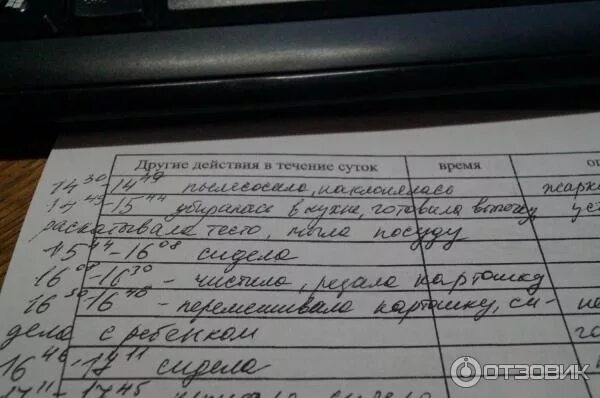 Другие действия в течение суток время оп
14 30 - 14 49 пылесосила, наклонялась жарко
14 49 - 15 44 убиралась в кухне, готовила выпечку, уст
раскатывала тесто, мыла посуду
15 44 - 16 08 сидела
16 08 - 16 30 - чистила, резала картошку
16 30 - 16 46 - перемешивала картошку, си-
дела с ребенком
16 46 - 17 11 сидела
17 11 - 17 45
ОТЗОВИК